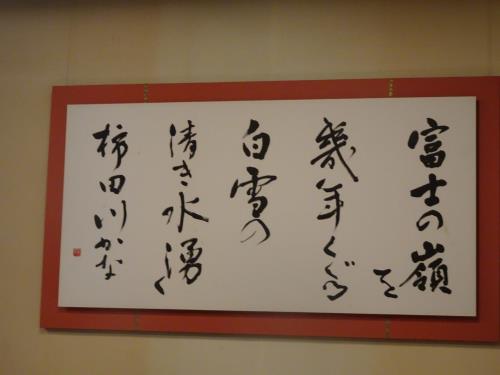 富士の嶺を
幾年くぐる
白雪の
清き水湧く
柿田川かな